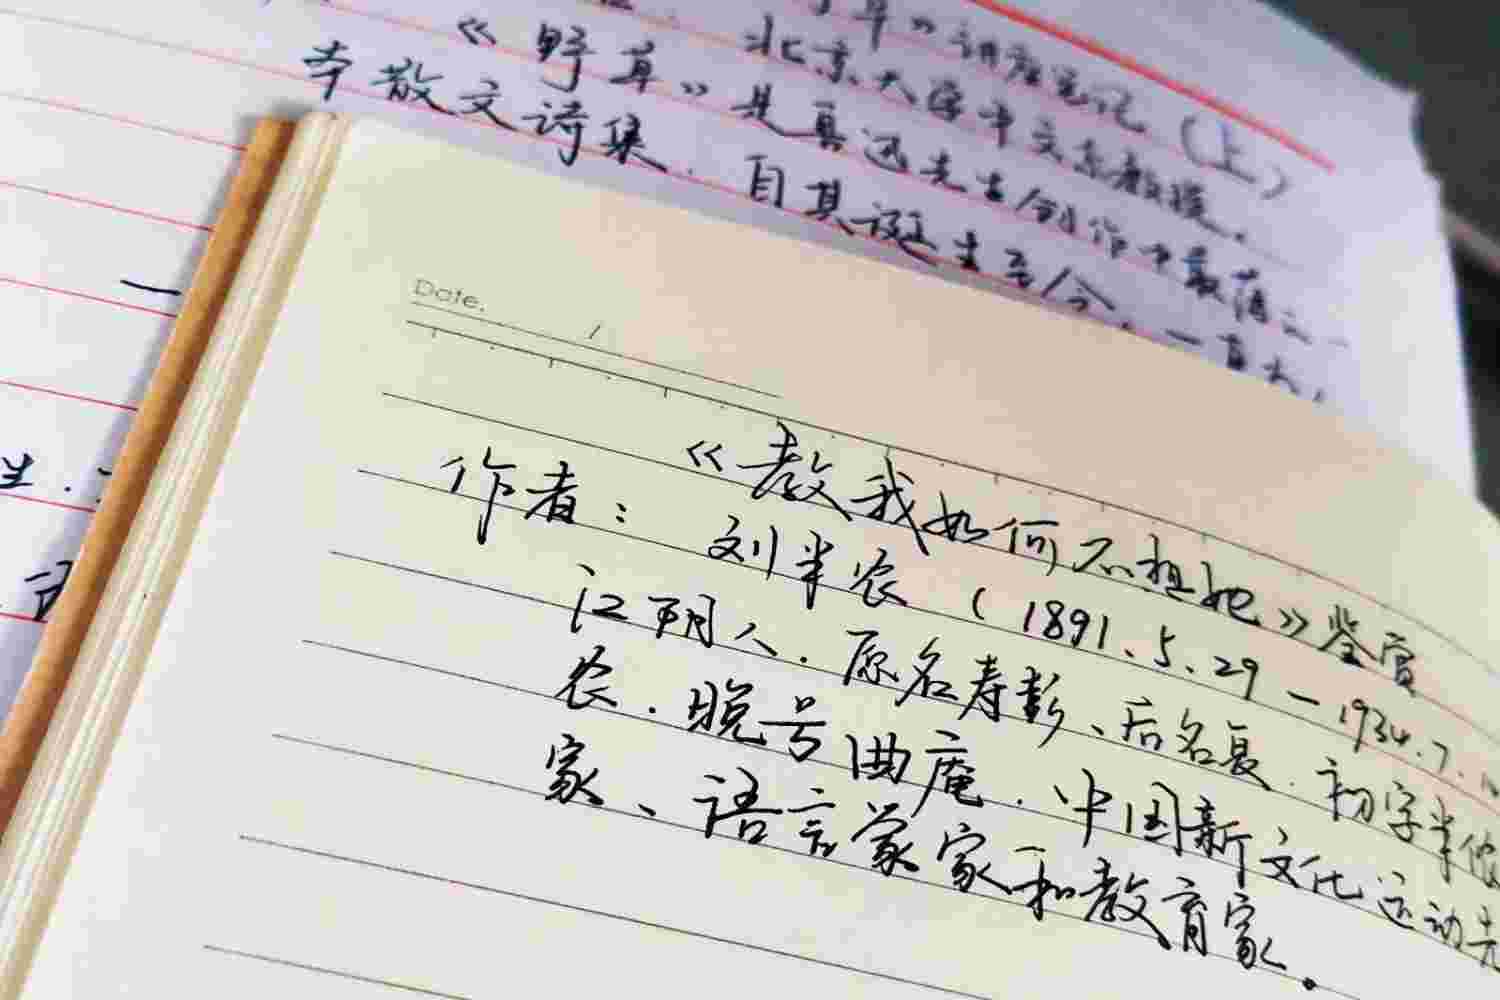 草》讲座笔记（上）
北京大学中文系教授。
《野草》是鲁迅先生创作中最薄的一
本散文诗集. 自其诞生至今, 一直
一
生.
Date. /
《教我如何不想她》鉴赏
作者： 刘半农 （1891.5.29－1934.7.
江阴人. 原名寿彭、后名复. 初字半侬
农. 晚号曲庵. 中国新文化运动先
家、语言学家和教育家。